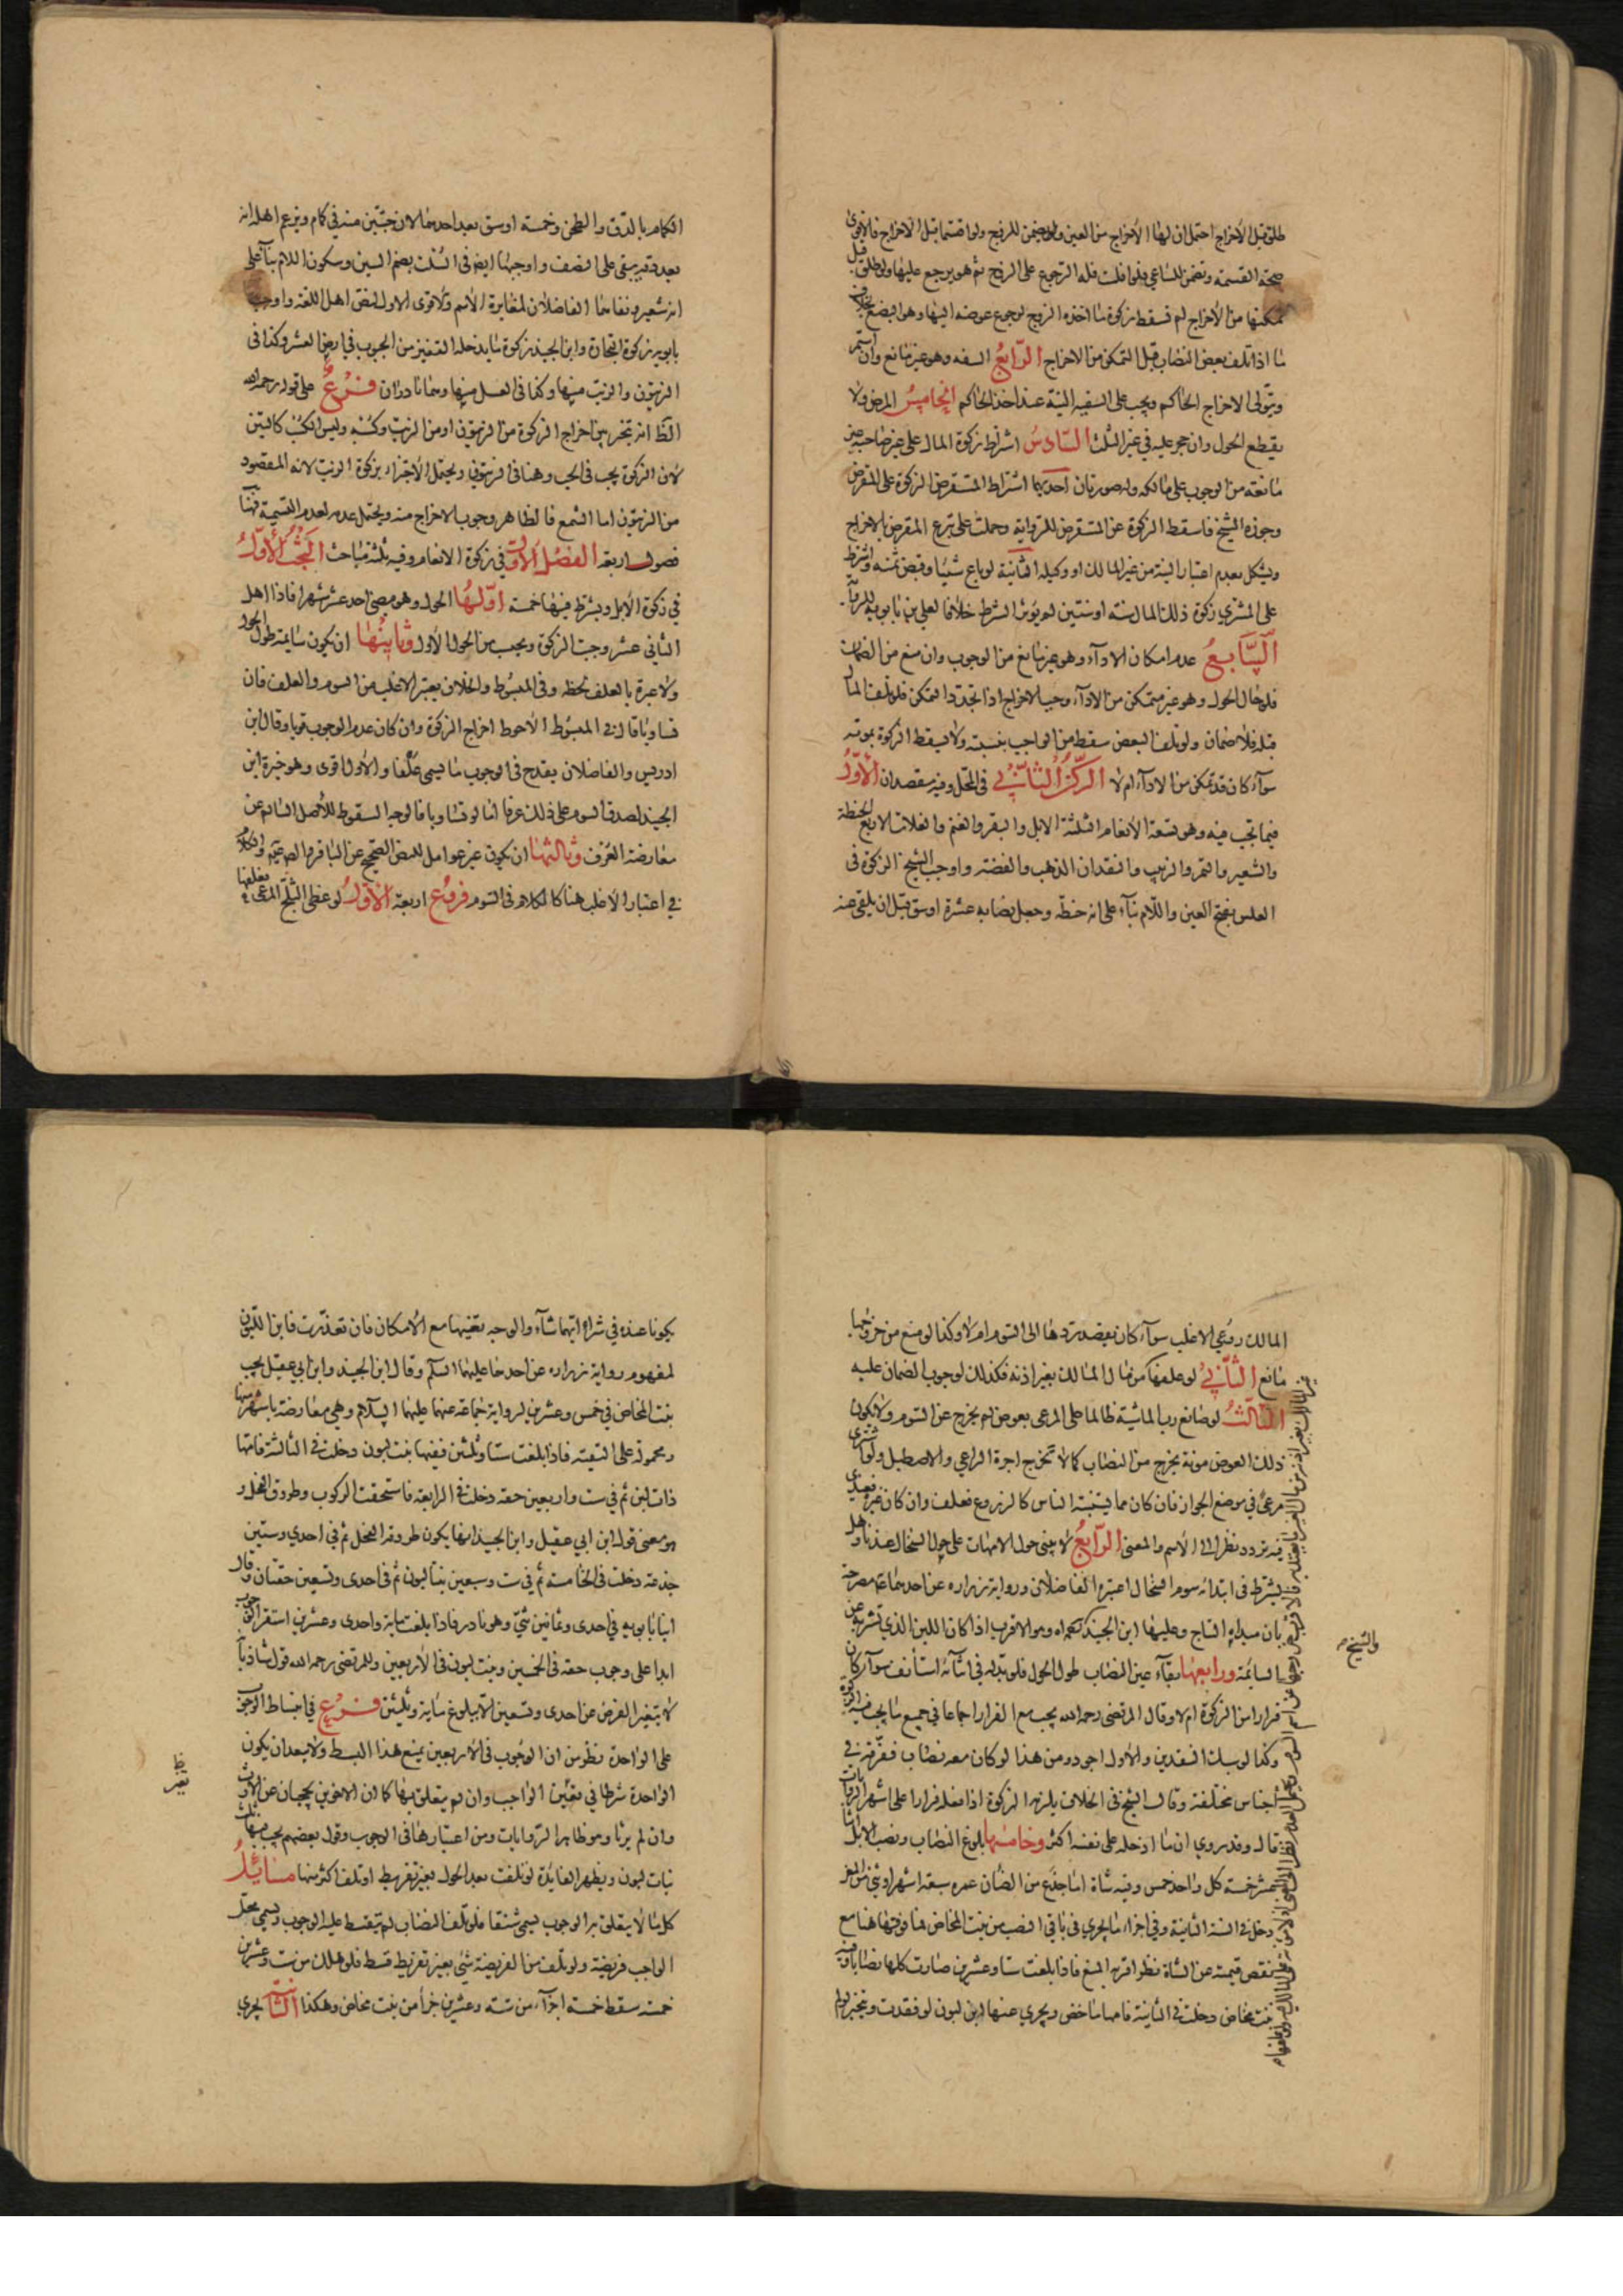 طلق قبل الاخراج احتمل ان لها الاخراج من العين ولو اقتسما قبل الاخراج فالاقوى
صحة القسمة وتضمن للساعي فلو افلست فله الرجوع على الزوج ثم هو يرجع عليها ولو طلق قبل
تمكنها من الاخراج لم تسقط زكوة ما اخذه الزوج لرجوع عوضه اليها وهو البضع بخلاف
ما اذا تلف بعض النصاب قبل التمكن من الاخراج الرابع السفه وهو غير مانع وان
ويتولى الاخراج الحاكم ويجب على السفيه النية عند اخذ الحاكم الخامس المرض ولا
يقطع الحول وان حجر عليه في غير الثلث السادس اشتراط زكوة المال على غير صاحبه غير
مانعة من الوجوب على مالكه وله صورتان احديهما اشتراط المستقرض الزكوة على المقرض
وجوزه الشيخ فاسقط الزكوة عن المستقرض للرواية وحملت على تبرع المقرض بالاخراج
ويشكل بعدم اعتبار النية من غير المالك او وكيله الثانية لو باع شيئا وقبض ثمنه واشترط
على المشتري زكوة ذلك المال سنة او سنتين لم يؤثر الشرط خلافا لعلي بن بابويه للرواية
السابع عدم امكان الاداء وهو غير مانع من الوجوب وان منع من الضمان
فلو حال الحول وهو غير متمكن من الاداء وجب الاخراج اذا تجدد التمكن فلو تلف المال
قبله فلا ضمان ولو تلف البعض سقط من الواجب بنسبته ولا يسقط الزكوة بموته
سواء كان قد تمكن من الاداء ام لا الركن الثاني في المحل وفيه مقصدان الاول
فيما تجب فيه وهو تسعة الانعام الثلثة الابل والبقر والغنم والغلات الاربع الحنطة
والشعير والتمر والزبيب والنقدان الذهب والفضة واوجب الشيخ الزكوة في
العلس بفتح العين واللام بناء على انه حنطة وجعل نصابه عشرة اوسق قبل ان يلقى عنه
الكمام بالدق والطحن وخمسة اوسق بعد احدهما لان حبتين منه في كمام ويزعم اهله انه
بعد دقه يبقى على النصف واوجبها ايضا في السلت بضم السين وسكون اللام بناء على
انه شعير ونفاهما الفاضلان لمغايرة الاسم والاقوى الاول لنص اهل اللغة واوجب
بابويه زكوة التجارة وابن الجنيد زكوة ما يدخله القفيز من الحبوب في ارض العشر وكذا في
الزيتون والزيت منها وكذا في العسل منها وهما نادران فرع على قوله رحمه الله
الظاهر انه يتخير بين اخراج الزكوة من الزيتون او من الزيت وكسبه وليس الكسب كالتبن
لان الزكوة يجب في الحب وهنا في الزيتون ويحتمل الاجتزاء بزكوة الزيت لانه المقصود
من الزيتون اما الشمع فالظاهر وجوب الاخراج منه ويحتمل عدمه لعدم التسمية فهنا
فصول اربعة الفصل الاول في زكوة الانعام وفيه ثلثة مباحث البحث الاول
في زكوة الابل ويشترط فيها خمسة اولها الحول وهو مضي احد عشر شهرا فاذا اهل
الثاني عشر وجبت الزكوة ويحسب من الحول الاول وثانيها ان يكون سائمة طول الحول
ولا عبرة بالعلف لحظة وفي المبسوط والخلاف يعتبر الاغلب من السوم والعلف فان
تساويا قال في المبسوط الاحوط اخراج الزكوة وان كان عدم الوجوب قويا وقال ابن
ادريس والفاضلان يقدح في الوجوب ما يسمى علفا والاول اقوى وهو خيرة ابن
الجنيد لصدق السوم على ذلك عرفا اما لو تساويا فالوجه السقوط للاصل السالم عن
معارضة العرف وثالثها ان يكون غير عوامل للنص الصحيح عن الباقر والصادق عليهما السلام والكلام
في اعتبار الاغلب هنا كالكلام في السوم فروع اربعة الاول لو غطى الثلج المرعى فعلفها
المالك روعي الاغلب سواء كان يقصد ردها الى السوم ام لا وكذا لو منع من خروجها
مانع الثاني لو علفها من مال المالك بغير اذنه فكذلك لوجوب الضمان عليه
الثالث لو صانع رب الماشية ظالما على المرعى بعوض لم يخرج عن السوم ولا يكون
ذلك العوض مونة يخرج من النصاب كما لا تخرج اجرة الراعي والاصطبل ولو اشترى
مرعى في موضع الجواز فان كان مما يستنبته الناس كالزرع فعلف وان كان غيره ففيه
تردد نظرا الى الاسم والمعنى الرابع لا يبنى حول الامهات على حول السخال عندنا وهل
يشترط في ابتدائه سوم السخال اعتبره الفاضلان ورواية زرارة عن احدهما ع مصرحة
بان مبداه النتاج وعليها ابن الجنيد وهو الاقرب اذا كان اللبن الذي تشربه عن
السائمة ورابعها بقاء عين النصاب طول الحول فلو بدله في اثنائه استأنف سواء كان
فرارا من الزكوة ام لا وقال المرتضى رحمه الله يجب مع الفرار اجماعا في جميع ما يجب فيه الزكوة
وكذا لو سبك النقدين والاول اجود ومن هذا لو كان معه نصاب ففرقه في
اجناس مختلفة وقال الشيخ في الخلاف يلزمه الزكوة اذا فعله فرارا على اشهر الروايات
قال وقد روي ان ما ادخله على نفسه اكثر وخامسها بلوغ النصاب ونصب الابل اثنا
عشر خمسة كل واحد خمس وفيه شاة اما جذع من الضان عمره سبعة اشهر او ثني من المعز
دخل في السنة الثانية وفي اجزاء ما يجري في باقي النصب من بنت المخاض فما فوقها هنا مع
نقص قيمته عن الشاة نظر اقربه المنع فاذا بلغت ستا وعشرين صارت كلها نصابا وفيه
بنت مخاض دخلت في الثانية فامها ماخض ويجري عنها ابن لبون لو فقدت ويتخير لو لم
والشيخ م
يكونا عنده في شراء ايهما شاء والوجه تعينها مع الامكان فان تعذرت فابن اللبون
لمفهوم رواية زرارة عن احدهما عليهما السلم وقال ابن الجنيد وابن ابي عقيل يجب
بنت المخاض في خمس وعشرين لرواية جماعة عنهما عليهما السلام وهي معارضة باشهر منها
ومحمولة على التقية فاذا بلغت ستا وثلثين ففيها بنت لبون دخلت في الثالثة فامها
ذات لبن ثم في ست واربعين حقة دخلت في الرابعة فاستحقت الركوب وطروق الفحل و
هو معنى قول ابن ابي عقيل وابن الجنيد انها يكون طروقة الفحل ثم في احدى وستين
جذعة دخلت في الخامسة ثم في ست وسبعين بنتا لبون ثم في احدى وتسعين حقتان وقال
ابنا بابويه في احدى وثمانين ثني وهو نادر فاذا بلغت ماية واحدى وعشرين استقر الحق
ابدا على وجوب حقة في الخمسين وبنت لبون في الاربعين وللمرتضى رحمه الله قول شاذ بانه
لا يتغير الفرض عن احدى وتسعين الا ببلوغ ماية وثلثين فرع في انبساط الوجوب
على الواحدة نظر من ان الوجوب في الاربعين يمنع هذا البسط ولا يبعد ان يكون
الواحدة شرطا في تعين الواجب وان لم يتعلق بها كما ان الاخوين يحجبان عن الارث
وان لم يرثا وهو ظاهر الروايات ومن اعتبارها في الوجوب وقول بعضهم يجب فيها ثلث
بنات لبون ويظهر الفايدة لو تلفت بعد الحول بغير تفريط او تلف اكثر منها مسايل
كل ما لا يتعلق به الوجوب يسمى شنقا فلو تلف النصاب لم يقسط عليه الوجوب ويسمى محل
الواجب فريضة ولو تلف من الفريضة شي بغير تفريط قسط فلو هلك من ست وعشرين
خمسة سقط خمسة اجزاء من ستة وعشرين جزأ من بنت مخاض وهكذا الثانية يجري